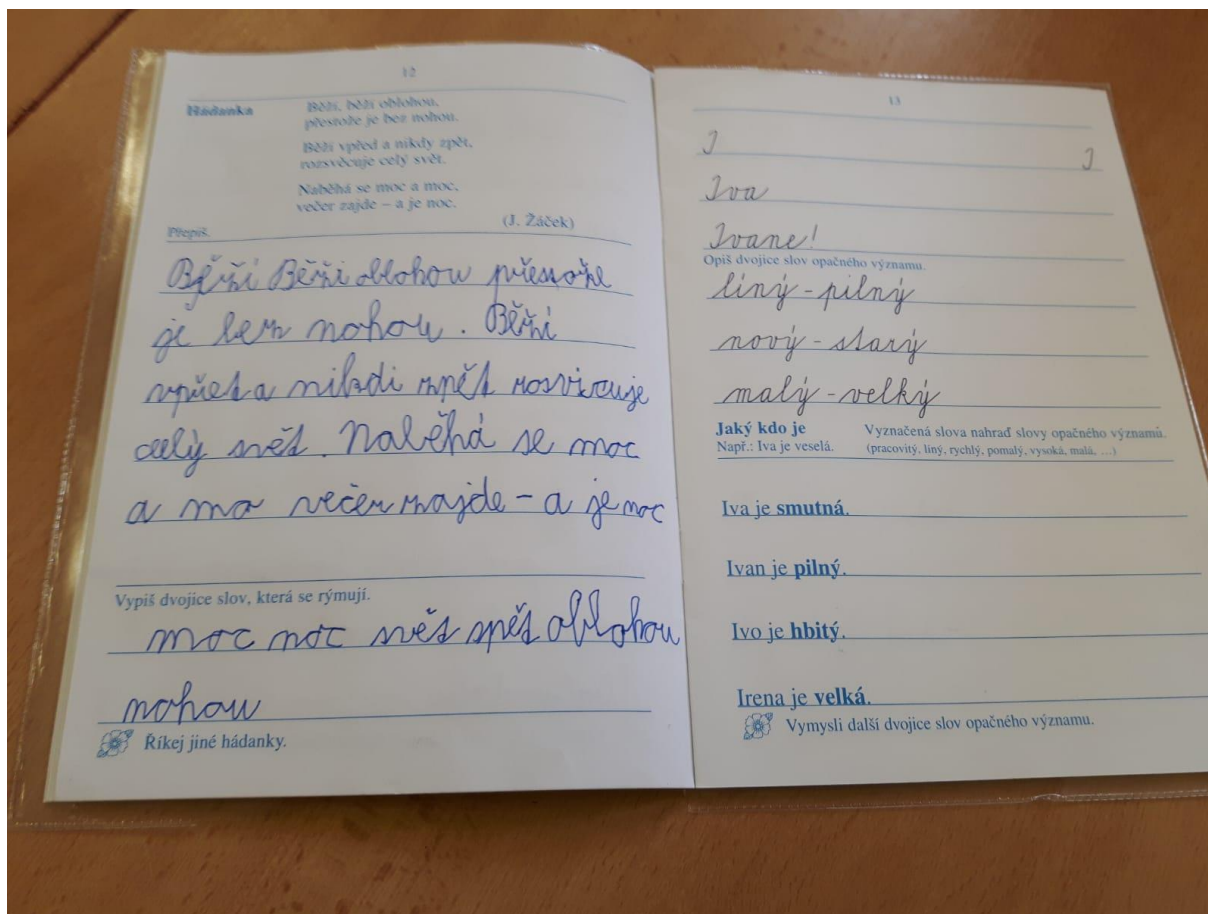 12
Hádanka
Běží, běží oblohou,
přestože je bez nohou.
Běží vpřed a nikdy zpět,
rozsvěcuje celý svět.
Naběhá se moc a moc,
večer zajde – a je noc.
(J. Žáček)
Přepiš.
Běží Běži oblohou přestože
je bez nohou. Běží
vpřet a nikdi zpět rosvicuje
celý svět. Naběhá se moc
a mo večer zajde – a je noc
Vypiš dvojice slov, která se rýmují.
moc noc svět spět oblohou
nohou
Říkej jiné hádanky.
13
I I
Iva
Ivane!
Opiš dvojice slov opačného významu.
líný - pilný
nový - starý
malý - velký
Jaký kdo je Vyznačená slova nahraď slovy opačného významu.
Např.: Iva je veselá. (pracovitý, líný, rychlý, pomalý, vysoká, malá, ...)
Iva je smutná.
Ivan je pilný.
Ivo je hbitý.
Irena je velká.
Vymysli další dvojice slov opačného významu.